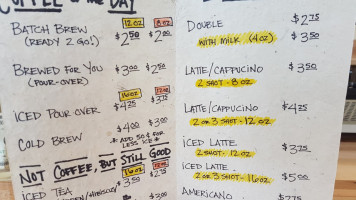 COFFEE OF THE DAY
12 OZ 8 OZ
BATCH BREW $2 50 $2 00
(READY 2 GO!)
BREWED FOR YOU $3 00 $2 50
(POUR-OVER)
16 OZ 12 OZ
ICED POUR OVER $4 25 $3 75
COLD BREW $4 00 $3 00
* ADD 50¢ FOR
LESS ICE *
NOT COFFEE, BUT STILL GOOD
16 OZ 12 OZ
ICED TEA $3 50 $2 75
DOUBLE $2 75
WITH MILK (4 OZ) $3 50
LATTE/CAPPUCINO $3 50
2 SHOT - 8 OZ
LATTE/CAPPUCINO $4 25
2 OR 3 SHOT - 12 OZ
ICED LATTE $3 75
2 SHOT - 12 OZ
ICED LATTE $5 00
2 OR 3 SHOT - 16 OZ
AMERICANO $2 75